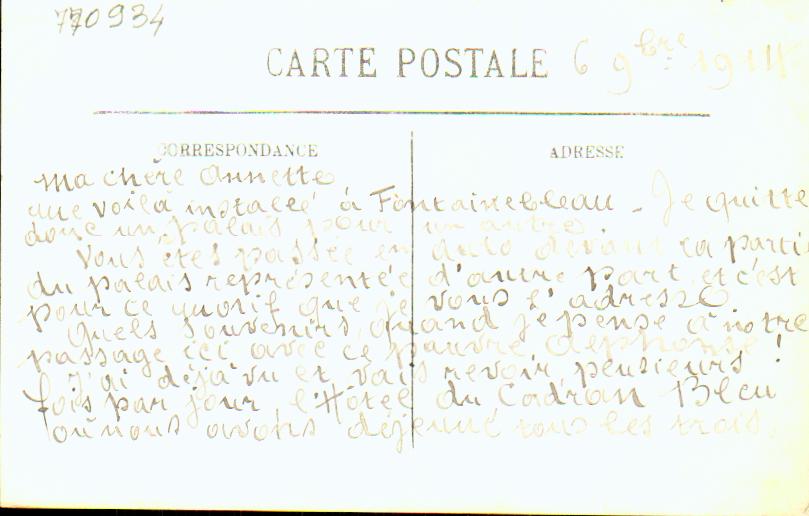 770934
CARTE POSTALE 6 9bre 1914
CORRESPONDANCE
ADRESSE
Ma chère Annette
me voilà installé à Fontainebleau - Je quitte
donc un palais pour un autre.
Vous êtes passée en auto devant la partie
du palais représentée d'autre part, et c'est
pour ce motif que je vous l'adresse
Quels souvenirs, quand je pense à notre
passage ici avec ce pauvre Alphonse !
J'ai déjà vu et vais revoir plusieurs
fois par jour l'Hôtel du Cadran Bleu
où nous avons déjeuné tous les trois.